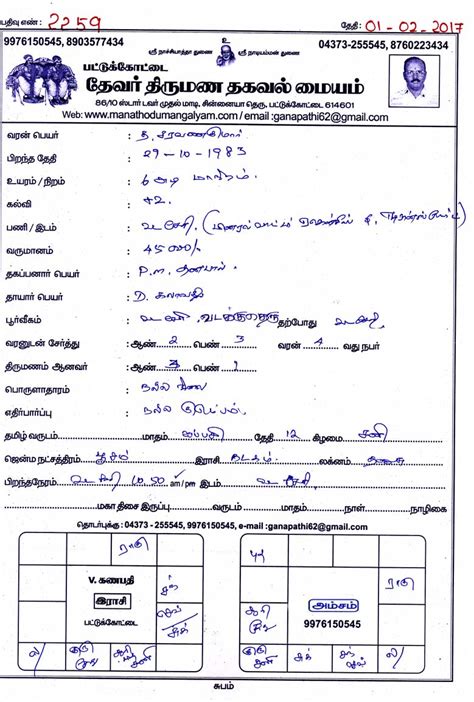 பதிவு எண் : 2259 தேதி : 01-02-2017
உ
9976150545, 8903577434 ஸ்ரீ நாச்சியாத்தா துணை ஸ்ரீ நாடியம்மன் துணை 04373-255545, 8760223434
பட்டுக்கோட்டை
தேவர் திருமண தகவல் மையம்
86/10 ஸ்டார் டவர் முதல் மாடி, சின்னையா தெரு, பட்டுக்கோட்டை 614601
Web: www.manathodumangalyam.com / email :ganapathi62@gmail.com
வரன் பெயர் : த. சரவணகுமார்
பிறந்த தேதி : 29-10-1983
உயரம் / நிறம் : 6 அடி மாநிறம்
கல்வி : +2.
பணி / இடம் :
வருமானம் : 45000/-
தகப்பனார் பெயர் : P.M. தனபால்
தாயார் பெயர் : D. கலாவதி
பூர்வீகம் : தற்போது
வரனுடன் சேர்த்து : ஆண் 2 பெண் 3 வரன் 4 வது நபர்
திருமணம் ஆனவர் : ஆண் பெண் 1
பொருளாதாரம் : நல்ல நிலை
எதிர்பார்ப்பு : நல்ல குடும்பம்.
தமிழ் வருடம் மாதம் ஐப்பசி தேதி 12 கிழமை சனி
ஜென்ம நட்சத்திரம் பூசம் இராசி கடகம் லக்னம் தனுசு
பிறந்தநேரம் 10.50 am/pm இடம்
மகா திசை இருப்பு வருடம் மாதம் நாள் நாழிகை
தொடர்புக்கு : 04373 - 255545, 9976150545, e-mail :ganapathi62@gmail.com
ராகு
V. கணபதி
இராசி
பட்டுக்கோட்டை
சந்
செவ்
சுக்
ல/
குரு
சூரி
புத
சனி
புத
ராகு
அம்சம்
9976150545
சூரி
செவ்
ல/
குரு
சனி
சுக்
சந்
கேது
சுபம்